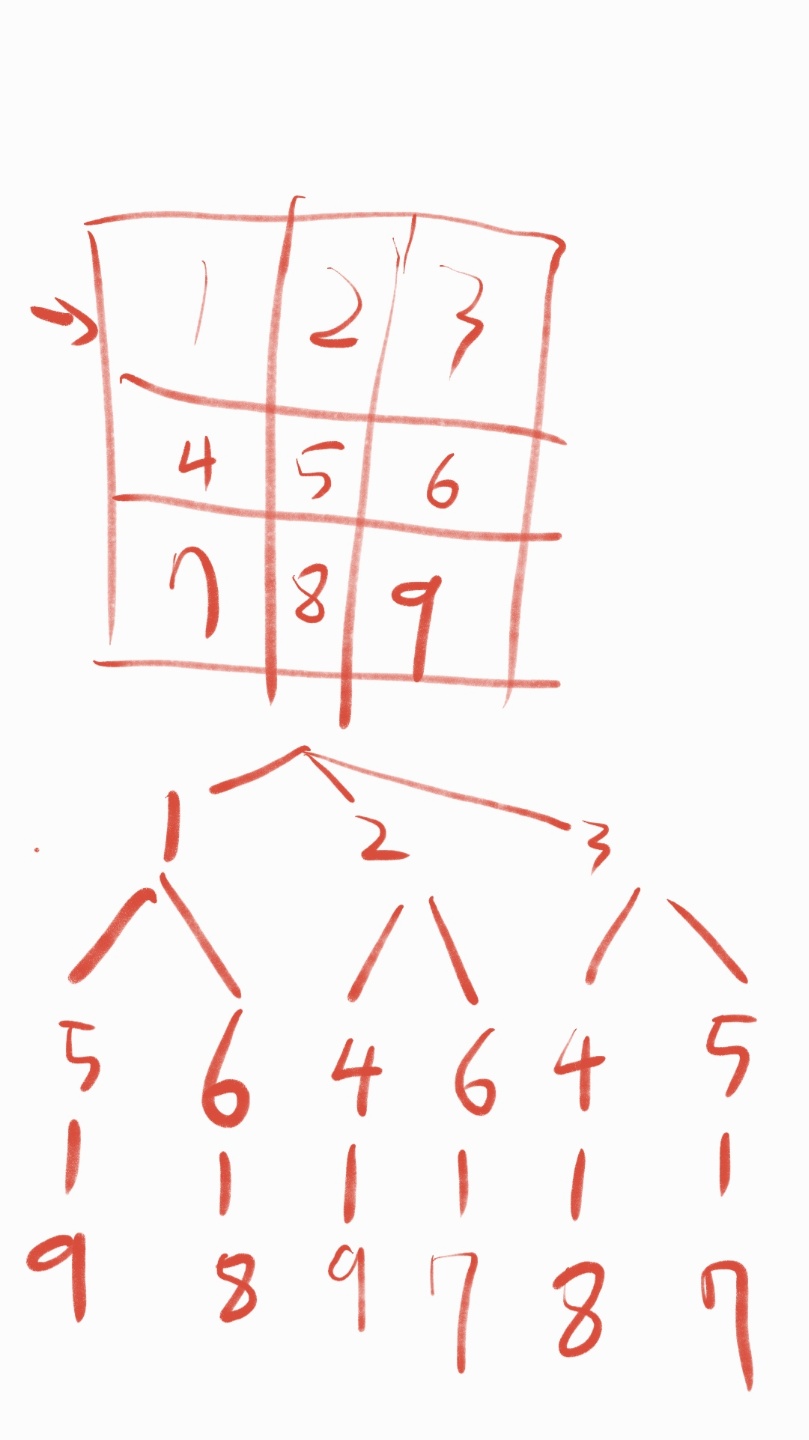 1 2 3
4 5 6
7 8 9
1 2 3
5 6 4 6 4 5
9 8 9 7 8 7